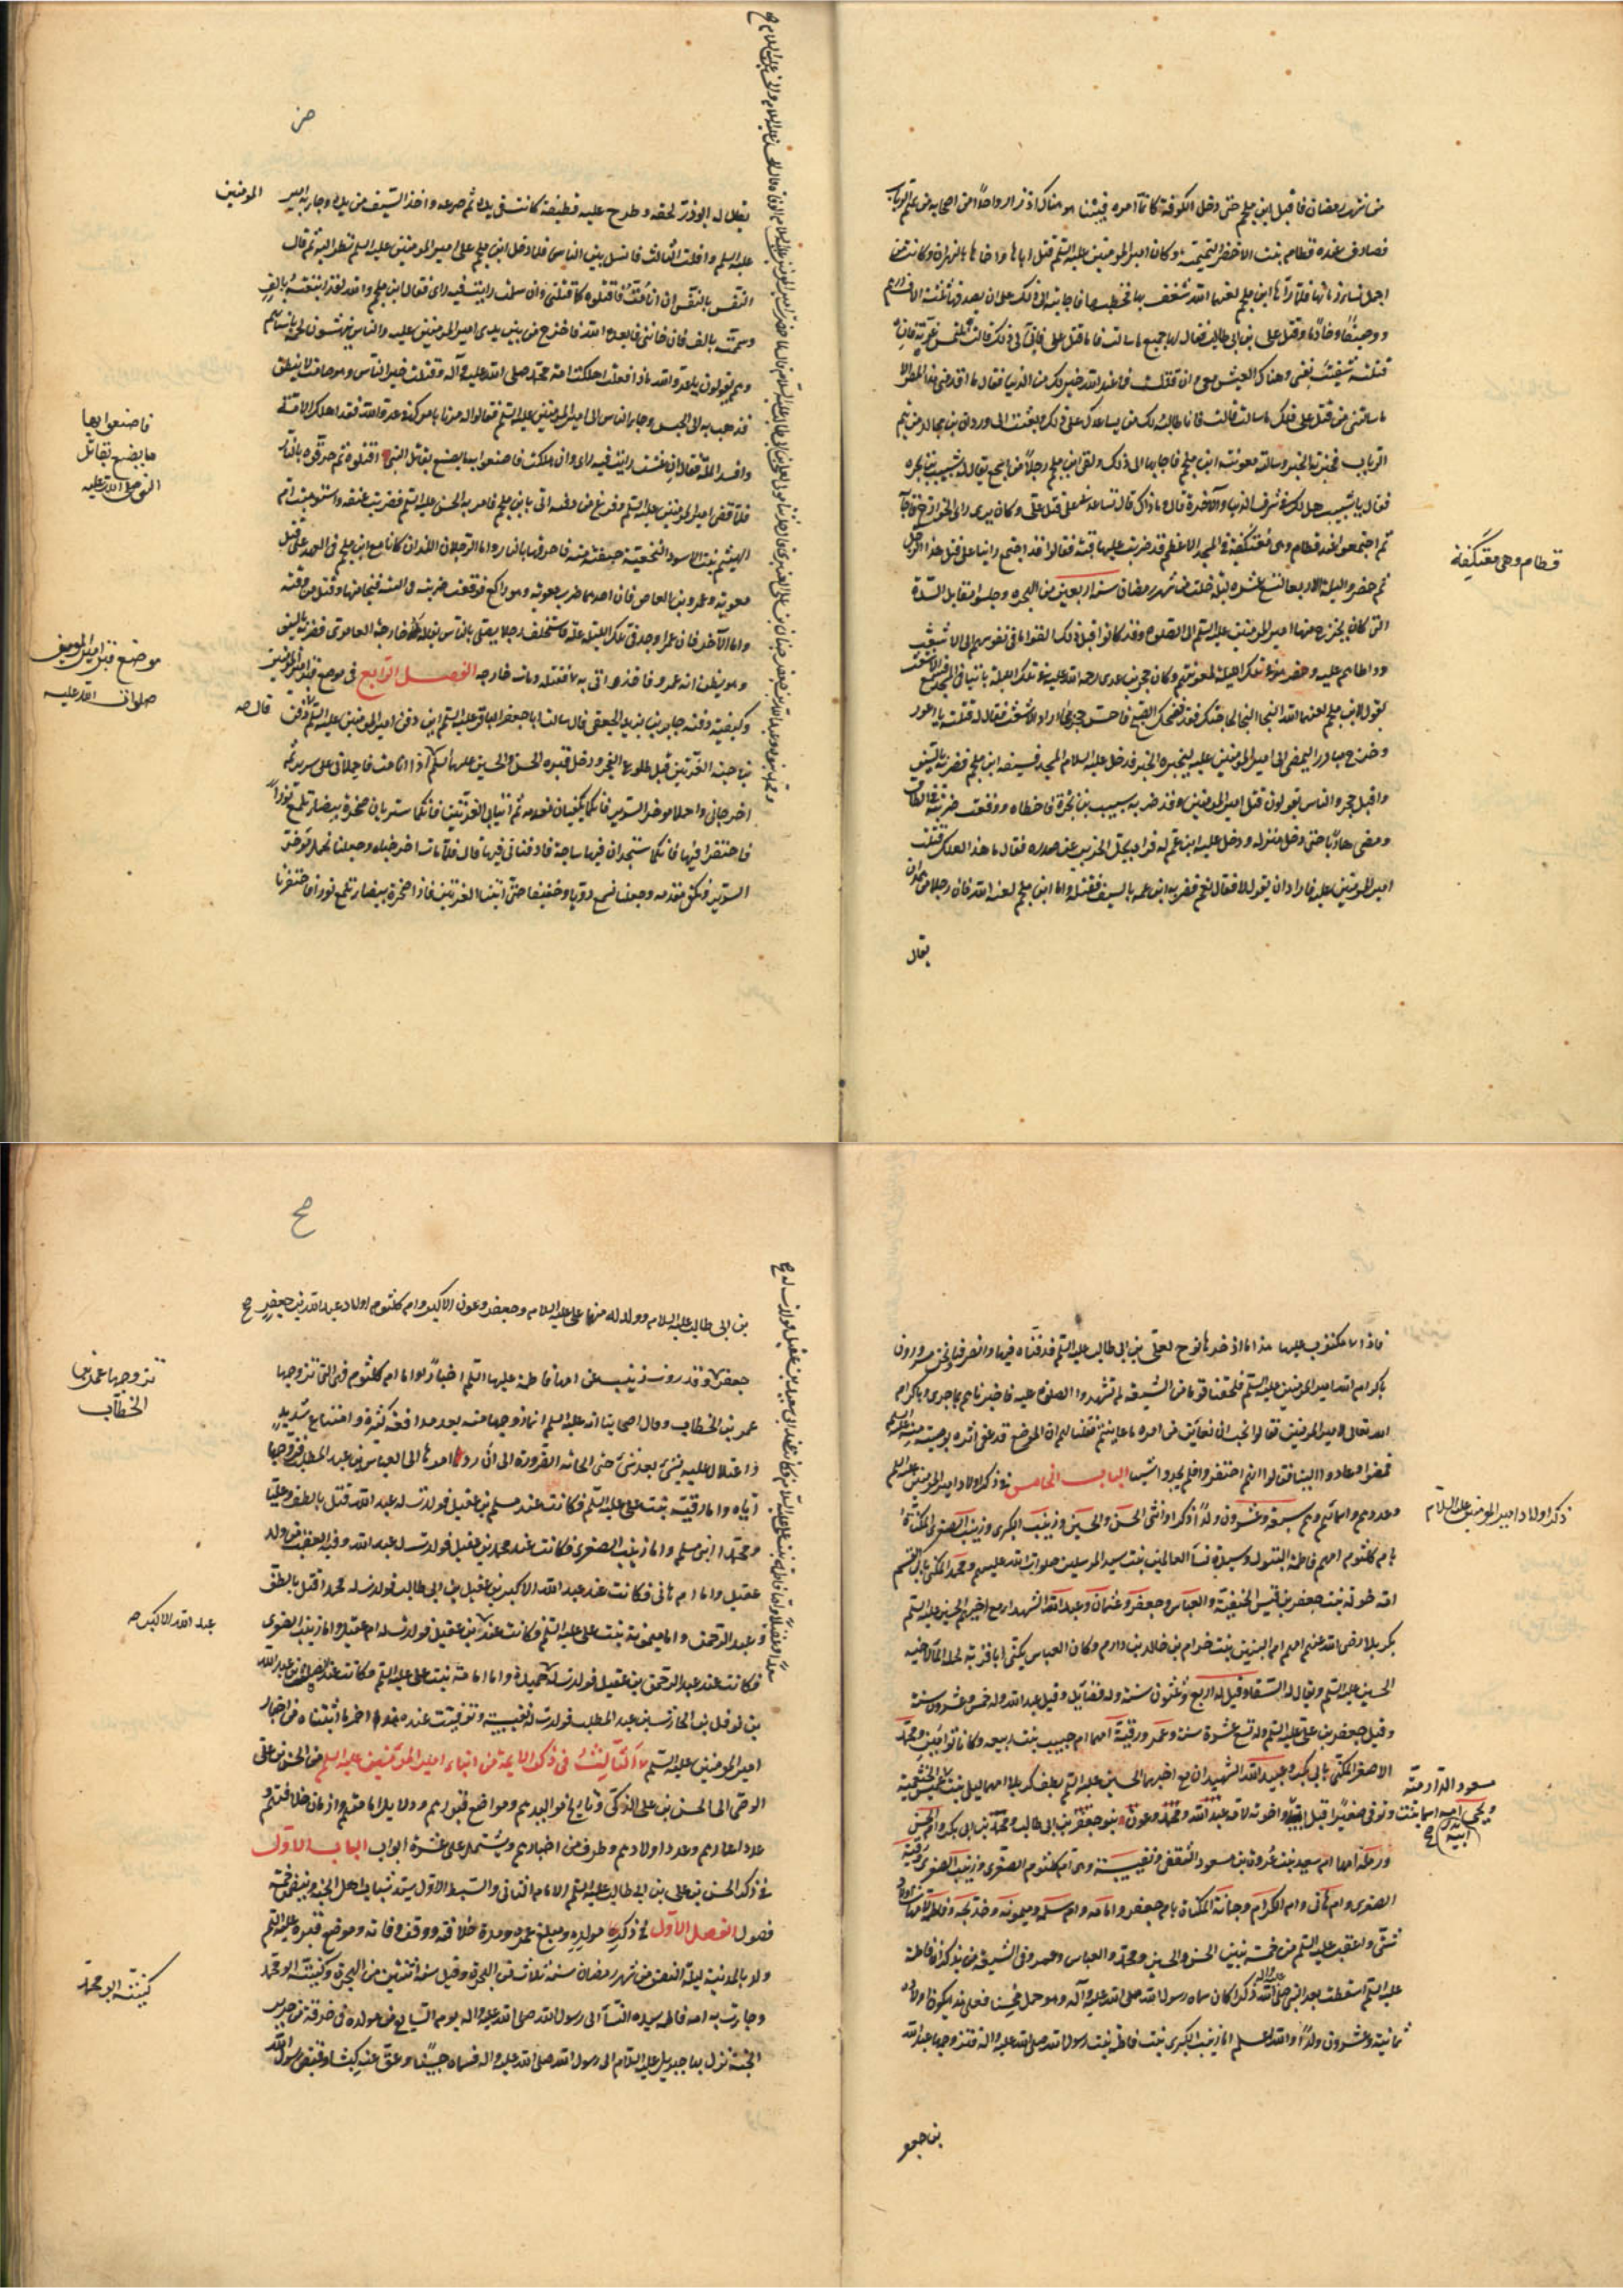 من شهر رمضان فاقبل ابن ملجم حتى دخل الكوفة كاتما امره فبينا هو هناك اذ زار واحدا من اصحابه من تيم الرباب
فصادف عنده قطام بنت الاخضر التيمية وكان امير المؤمنين عليه السلم قتل اباها واخاها بالنهروان وكانت من
اجمل نساء زمانها فلما رآها ابن ملجم لعنه الله شغف بها فخطبها فاجابته الى ذلك على ان يصدقها ثلثة الاف درهم
ووصيفا وخادما وقتل على بن ابى طالب فقال لها جميع ما سالت فاما قتل على فانى لى ذلك قالت تلتمس غرته فان
قتلته شفيت نفسى وهناك العيش معى وان قتلت فما عند الله خير لك من الدنيا فقال ما اقدمنى هذا المصر الا
ما سالتنى من قتل على فلك ما سالت قالت فانا طالبة لك من يساعدك على ذلك وبعثت الى وردان بن مجالد من تيم
الرباب فخبرته الخبر وسالته معونة ابن ملجم فاجابها الى ذلك ولقى ابن ملجم رجلا من اشجع يقال له شبيب بن بجرة
فقال يا شبيب هل لك فى شرف الدنيا والآخرة قال وما ذاك قال تساعدنى على قتل على وكان يرى راى الخوارج فاجابه
ثم اجتمعوا عند قطام وهى معتكفة فى المسجد الاعظم قد ضربت عليها قبة فقالوا قد اجتمع راينا على قتل هذا الرجل
ثم حضروا ليلة الاربعا لتسع عشرة ليلة خلت من شهر رمضان سنة اربعين من الهجرة وجلسوا مقابل السدة
التى كان يخرج منها امير المؤمنين عليه السلم الى الصلوة وقد كانوا قبل ذلك القوا ما فى نفوسهم الى الاشعث
وواطاهم عليه وحضر هو فى تلك الليلة لمعونتهم وكان حجر بن عدى رحمة الله عليه فى تلك الليلة بائتا فى المسجد فسمع الاشعث
يقول لابن ملجم لعنه الله النجا النجا لحاجتك فقد فضحك الصبح فاحس حجر بما اراد الاشعث فقال له قتلته يا اعور
وخرج مبادرا ليمضى الى امير المؤمنين عليه ليخبره الخبر فدخل عليه السلام المسجد فسبقه ابن ملجم فضربه بالسيف
واقبل حجر والناس يقولون قتل امير المؤمنين وقد ضربه شبيب بن بجرة فاخطاه ووقعت ضربته فى الطاق
ومضى هاربا حتى دخل منزله ودخل عليه ابن عم له فراه يحل الحرير عن صدره فقال ما هذا لعلك قتلت
امير المؤمنين عليه فاراد ان يقول لا فقال نعم فضربه ابن عمه بالسيف فقتله واما ابن ملجم لعنه الله فان رجلا من همدان
يقال
قطام وهى معتكفة
يقال له ابو ذر لحقه وطرح عليه قطيفة كانت فى يده ثم صرعه واخذ السيف من يده وجاء به امير المومنين
عليه السلم وافلت الثالث فانسل بين الناس فلما دخل ابن ملجم على امير المومنين عليه السلم نظر اليه ثم قال
النفس بالنفس ان انا مت فاقتلوه كما قتلنى وان سلمت رايت فيه راى فقال ابن ملجم والله لقد ابتعته بالف
وسممته بالف فان خاننى فابعده الله فاخرج من بين يدى امير المومنين عليه والناس ينهشون لحمه باسنانهم
وهم يقولون يا عدو الله ماذا فعلت اهلكت امة محمد صلى الله عليه وآله وقتلت خير الناس وهو صامت لا ينطق
فذهب به الى الحبس وجاء الناس الى امير المومنين عليه السلم فقالوا له مرنا بامرك فى عدو الله فقد اهلك الامة
وافسد الملة فقال ان عشت رايت فيه راى وان هلكت فاصنعوا به ما يصنع بقاتل النبى اقتلوه ثم حرقوه بالنار
فلما قضى امير المومنين عليه السلم وفرغ من دفنه اتى بابن ملجم فامر به الحسن عليه السلم فضربت عنقه واستوهبت ام
الهيثم بنت الاسود النخعية جيفته منه فاحرقتها بالنار واما الرجلان اللذان كانا مع ابن ملجم فى العهد على قتل
معوية وعمرو بن العاص فان احدهما ضرب معوية وهو راكع فوقعت ضربته فى اليته فنجا منها وقتل من وقته
واما الآخر فان عمرا وجد فى تلك الليلة علة فاستخلف رجلا يصلى بالناس يقال له خارجة العامرى فضربه بالسيف
وهو يظن انه عمرو فاخذ واتى به عمرا فقتله ومات خارجه الفصل الرابع فى موضع قبر امير المومنين
وكيفية دفنه جابر بن يزيد الجعفى قال سالت ابا جعفر الباقر عليه السلم اين دفن امير المومنين عليه السلم قال دفن
بناحية الغريين قبل طلوع الفجر ودخل قبره الحسن والحسين عليهما السلم اذا انا مت فاحملانى على سرير ثم
اخرجانى واحملا موخر السرير فانكما تكفيان مقدمه ثم ائتيا بى الغريين فانكما ستريان صخرة بيضاء تلمع نورا
فاحتفرا فيها فانكما ستجدان فيها ساجة فادفنانى فيها قال فلما مات اخرجناه وجعلنا نحمل موخر
السرير ونكفى مقدمه وجعلنا نسمع دويا وحفيفا حتى اتينا الغريين فاذا صخرة بيضاء تلمع نورا فاحتفرنا
فاصنعوا بها
ما يصنع بقاتل
النبى صلى الله عليه
موضع قبر امير المومنين
صلوات الله عليه
قال صه
فاذا مكتوب عليها هذا ما ادخره نوح لعلى بن ابى طالب عليه السلم فدفناه فيها وانصرفنا ونحن مسرورون
باكرام الله امير المومنين عليه السلم فلحقنا قوم من الشيعة لم تشهدوا الصلوة عليه فاخبرناهم بما جرى وباكرام
الله تعالى امير المومنين فقالوا نحب ان نعاين من امره ما عاينتم فقلنا لهم ان الموضع قد عفى اثره بوصية منه عليه السلم
فمضوا وعادوا الينا فقالوا انهم احتفروا فلم يجدوا شيا الباب الخامس فى ذكر اولاد امير المومنين عليه السلم
وعددهم واسمائهم وهم سبعة وعشرون ولدا ذكرا وانثى الحسن والحسين وزينب الكبرى وزينب الصغرى المكناة
بام كلثوم امهم فاطمة البتول وسيدة نساء العالمين بنت سيد المرسلين صلوات الله عليهم ومحمد المكنى بابى القسم
امه خولة بنت جعفر بن قيس الحنفية والعباس وجعفر وعثمان وعبد الله الشهداء مع اخيهم الحسين عليه السلم
بكربلا رضى الله عنهم امهم ام البنين بنت حزام بن خالد بن دارم وكان العباس يكنى ابا قربة لحمله الماء لاخيه
الحسين عليه السلم ويقال له السقا وقتل له اربع وثلثون سنة وله فضايل وقتل عبد الله وله خمس وعشرون سنة
وقتل جعفر بن على عليه السلم وله تسع عشرة سنة وعمر ورقية امهما ام حبيب بنت ربيعه وكانا توامين ومحمد
الاصغر المكنى بابى بكر وعبيد الله الشهيدان مع اخيهما الحسين عليه السلم بطف كربلا امهما ليلى بنت
ويحيى امه اسما بنت عميس الخثعمية وتوفى صغيرا قبل ابيه واخوته لامه عبد الله ومحمد وعون بنو جعفر بن ابى طالب ومحمد بن ابى بكر وام الحسن
ورملة امهما ام سعيد بنت عروة بن مسعود الثقفى ونفيسة وهى ام كلثوم الصغرى وزينب الصغرى ورقية
الصغرى وام هانى وام الكرام وجمانة المكناة بام جعفر وامامة وام سلمة وميمونه وخديجة وفاطمة لامهات اولاد
شتى واعقب عليه السلم من خمسة بنين الحسن والحسين ومحمد والعباس وعمر وفى الشيعة من يذكر ان فاطمة
عليها السلم اسقطت بعد النبى صلى الله عليه وآله ذكرا كان سماه رسول الله صلى الله عليه وآله وهو حمل محسنا فعلى هذا يكون اولاده
ثمانية وعشرون ولدا والله اعلم اما زينب الكبرى بنت فاطمة بنت رسول الله صلى الله عليه واله فتزوجها عبد الله
بن جعفر
ذكر اولاد امير المومنين عليه السلام
مسعود الدارمية
بن ابى طالب عليه السلام وولد له منها على عليه السلام وجعفر وعون الاكبر وام كلثوم اولاد عبد الله بن جعفر صح
جعفر وقد روت زينب عن امها فاطمة عليها السلم اخبارا واما ام كلثوم فهى التى تزوجها
عمر بن الخطاب وقال اصحابنا انه عليه السلم انما زوجها منه بعد مدافعة كثيرة وامتناع شديد
واعتلال عليه بشىء بعد شىء حتى الجاته الضرورة الى ان رد امرها الى العباس بن عبد المطلب فزوجها
اياه واما رقية بنت على عليه السلم فكانت عند مسلم بن عقيل فولدت له عبد الله قتل بالطف وعليا
ومحمدا ابنى مسلم واما زينب الصغرى فكانت عند محمد بن عقيل فولدت له عبد الله وفيه العقب من ولد
عقيل واما ام هانى فكانت عند عبد الله الاكبر بن عقيل بن ابى طالب فولدت له محمدا قتل بالطف
وعبد الرحمن واما ميمونة بنت على عليه السلم فكانت عند بن عقيل فولدت له ام عقيل واما زينب الصغرى
فكانت عند عبد الرحمن بن عقيل فولدت له حميدة واما امامة بنت على عليه السلم فكانت عند الصلت بن عبد الله
بن نوفل بن الحارث بن عبد المطلب فولدت له نفيسة وتوفيت عنده هذا اخر ما اثبتناه من اخبار
امير المومنين عليه السلم الثالث فى ذكر الايمة من ابناء امير المومنين عليه السلم من الحسن بن على
الوصى الى الحسن بن على الزكى وتاريخ مواليدهم ومواضع قبورهم ودلايل امامتهم وازمان خلافتهم
عدد اعمارهم وعدد اولادهم وطرف من اخبارهم ويشتمل على عشرة ابواب الباب الاول
فى ذكر الحسن بن على بن ابى طالب عليه السلم الامام الثانى والسبط الاول سيد شباب اهل الجنة ويتضمن خمسة
فصول الفصل الاول فى ذكر مولده ومبلغ عمره ومدة خلافته ووقت وفاته وموضع قبره عليه السلم
ولد بالمدينة ليلة النصف من شهر رمضان سنة ثلاث من الهجرة وقيل سنة اثنتين من الهجرة وكنيته ابو محمد
وجاءت به امه فاطمه سيدة النساء الى رسول الله صلى الله عليه واله يوم السابع من مولده فى خرقة من حرير
الجنة نزل بها جبريل عليه السلام الى رسول الله صلى الله عليه واله فسماه حسنا وعق عنه كبشا وقبض رسول الله
تزوجها عمر بن
الخطاب
عبد الله الاكبر صه
كنيته ابو محمد